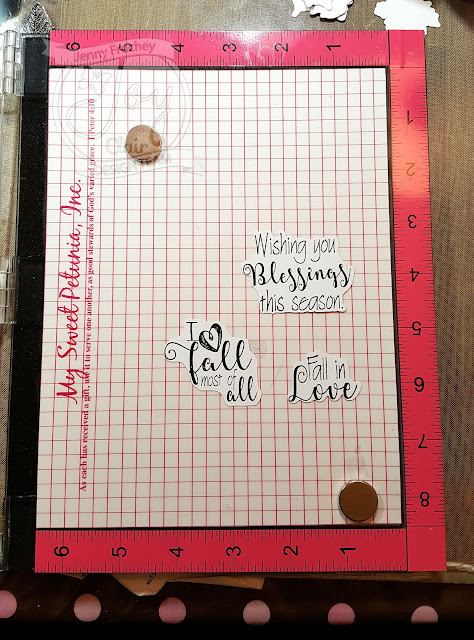 Jenny Frathey
Joy
Clair
DESIGN TEAM
6 5 4 3 2 1
My Sweet Petunia, Inc.
As each has received a gift, use it to serve one another, as good stewards of God's varied grace. 1 Peter 4:10
1
2
3
4
5
6
7
8
Wishing you
Blessings
this season.
I
fall
most of
all
Fall in
Love
6 5 4 3 2 1